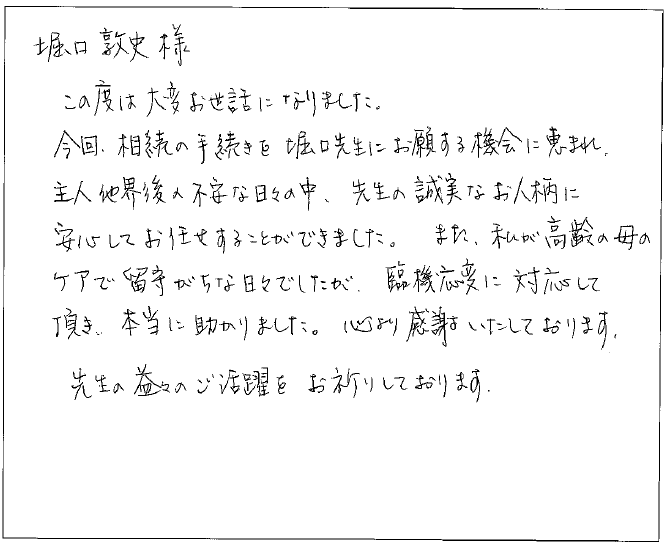 堀口敦史様
この度は大変お世話になりました。
今回、相続の手続きを堀口先生にお願する機会に恵まれ、
主人他界後の不安な日々の中、先生の誠実なお人柄に
安心してお任せすることができました。また、私が高齢の母の
ケアで留守がちな日々でしたが、臨機応変に対応して
頂き、本当に助かりました。心より感謝いたしております。
先生の益々のご活躍をお祈りしております。